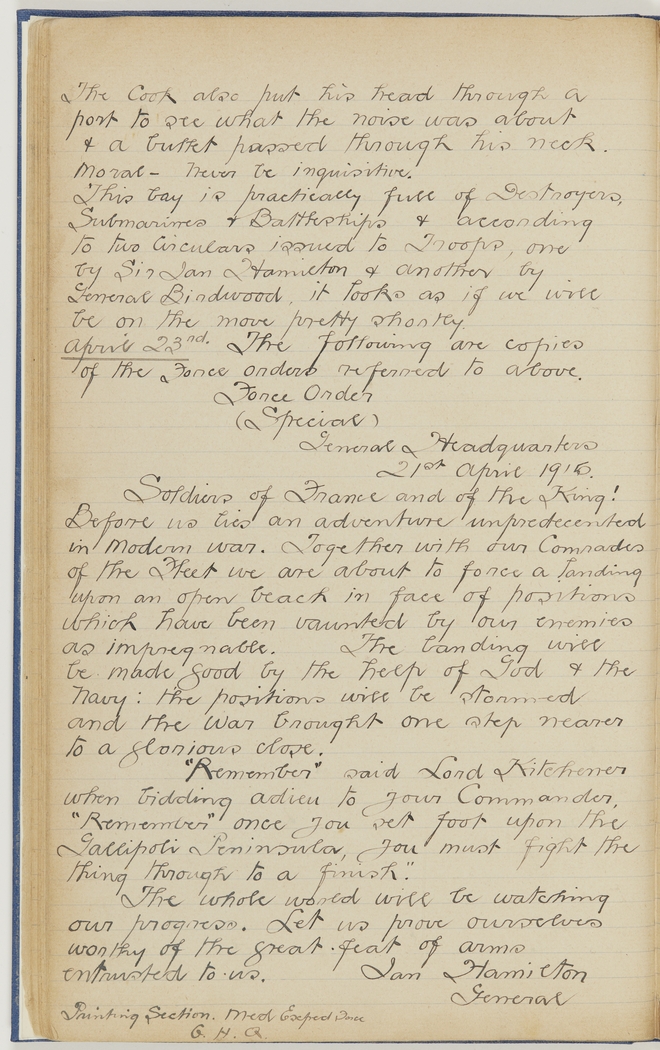 The Cook also put his head through a
port to see what the noise was about
& a bullet passed through his neck.
Moral - Never be inquisitive.
This bay is practically full of Destroyers,
Submarines & Battleships & according
to two Circulars issued to Troops, one
by Sir Ian Hamilton & another by
General Birdwood, it looks as if we will
be on the move pretty shortly.
April 23rd. The following are copies
of the Force orders referred to above.
Force Order
(Special)
General Headquarters
21st April 1915.
Soldiers of France and of the King!
Before us lies an adventure unpredecented
in Modern war. Together with our Comrades
of the Fleet we are about to force a landing
upon an open beach in face of positions
which have been vaunted by our enemies
as impregnable. The landing will
be made good by the help of God & the
Navy: the positions will be stormed
and the War brought one step nearer
to a glorious close.
"Remember" said Lord Kitchener
when bidding adieu to your Commander,
"Remember" once you set foot upon the
Gallipoli Peninsula, you must fight the
thing through to a finish".
The whole world will be watching
our progress. Let us prove ourselves
worthy of the great feat of arms
entrusted to us. Ian Hamilton
General
Printing Section. Med Exped Force
G. H. Q.